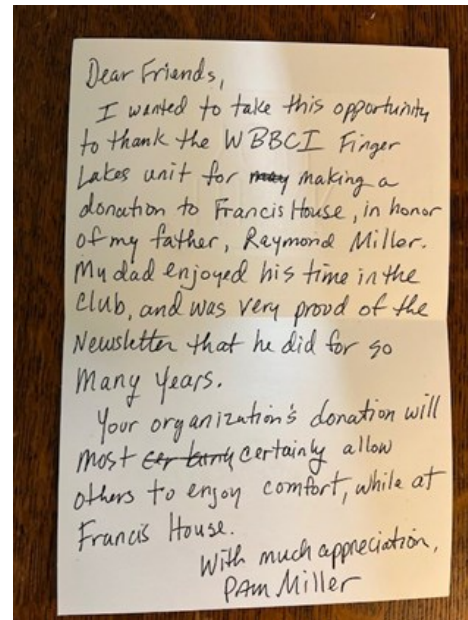 Dear Friends,
I wanted to take this opportunity
to thank the WBBCI Finger
Lakes unit for may making a
donation to Francis House, in honor
of my father, Raymond Miller.
My dad enjoyed his time in the
Club, and was very proud of the
Newsletter that he did for so
Many years.
Your organization's donation will
most certainly allow
others to enjoy comfort, while at
Francis House.
With much appreciation,
PAM Miller